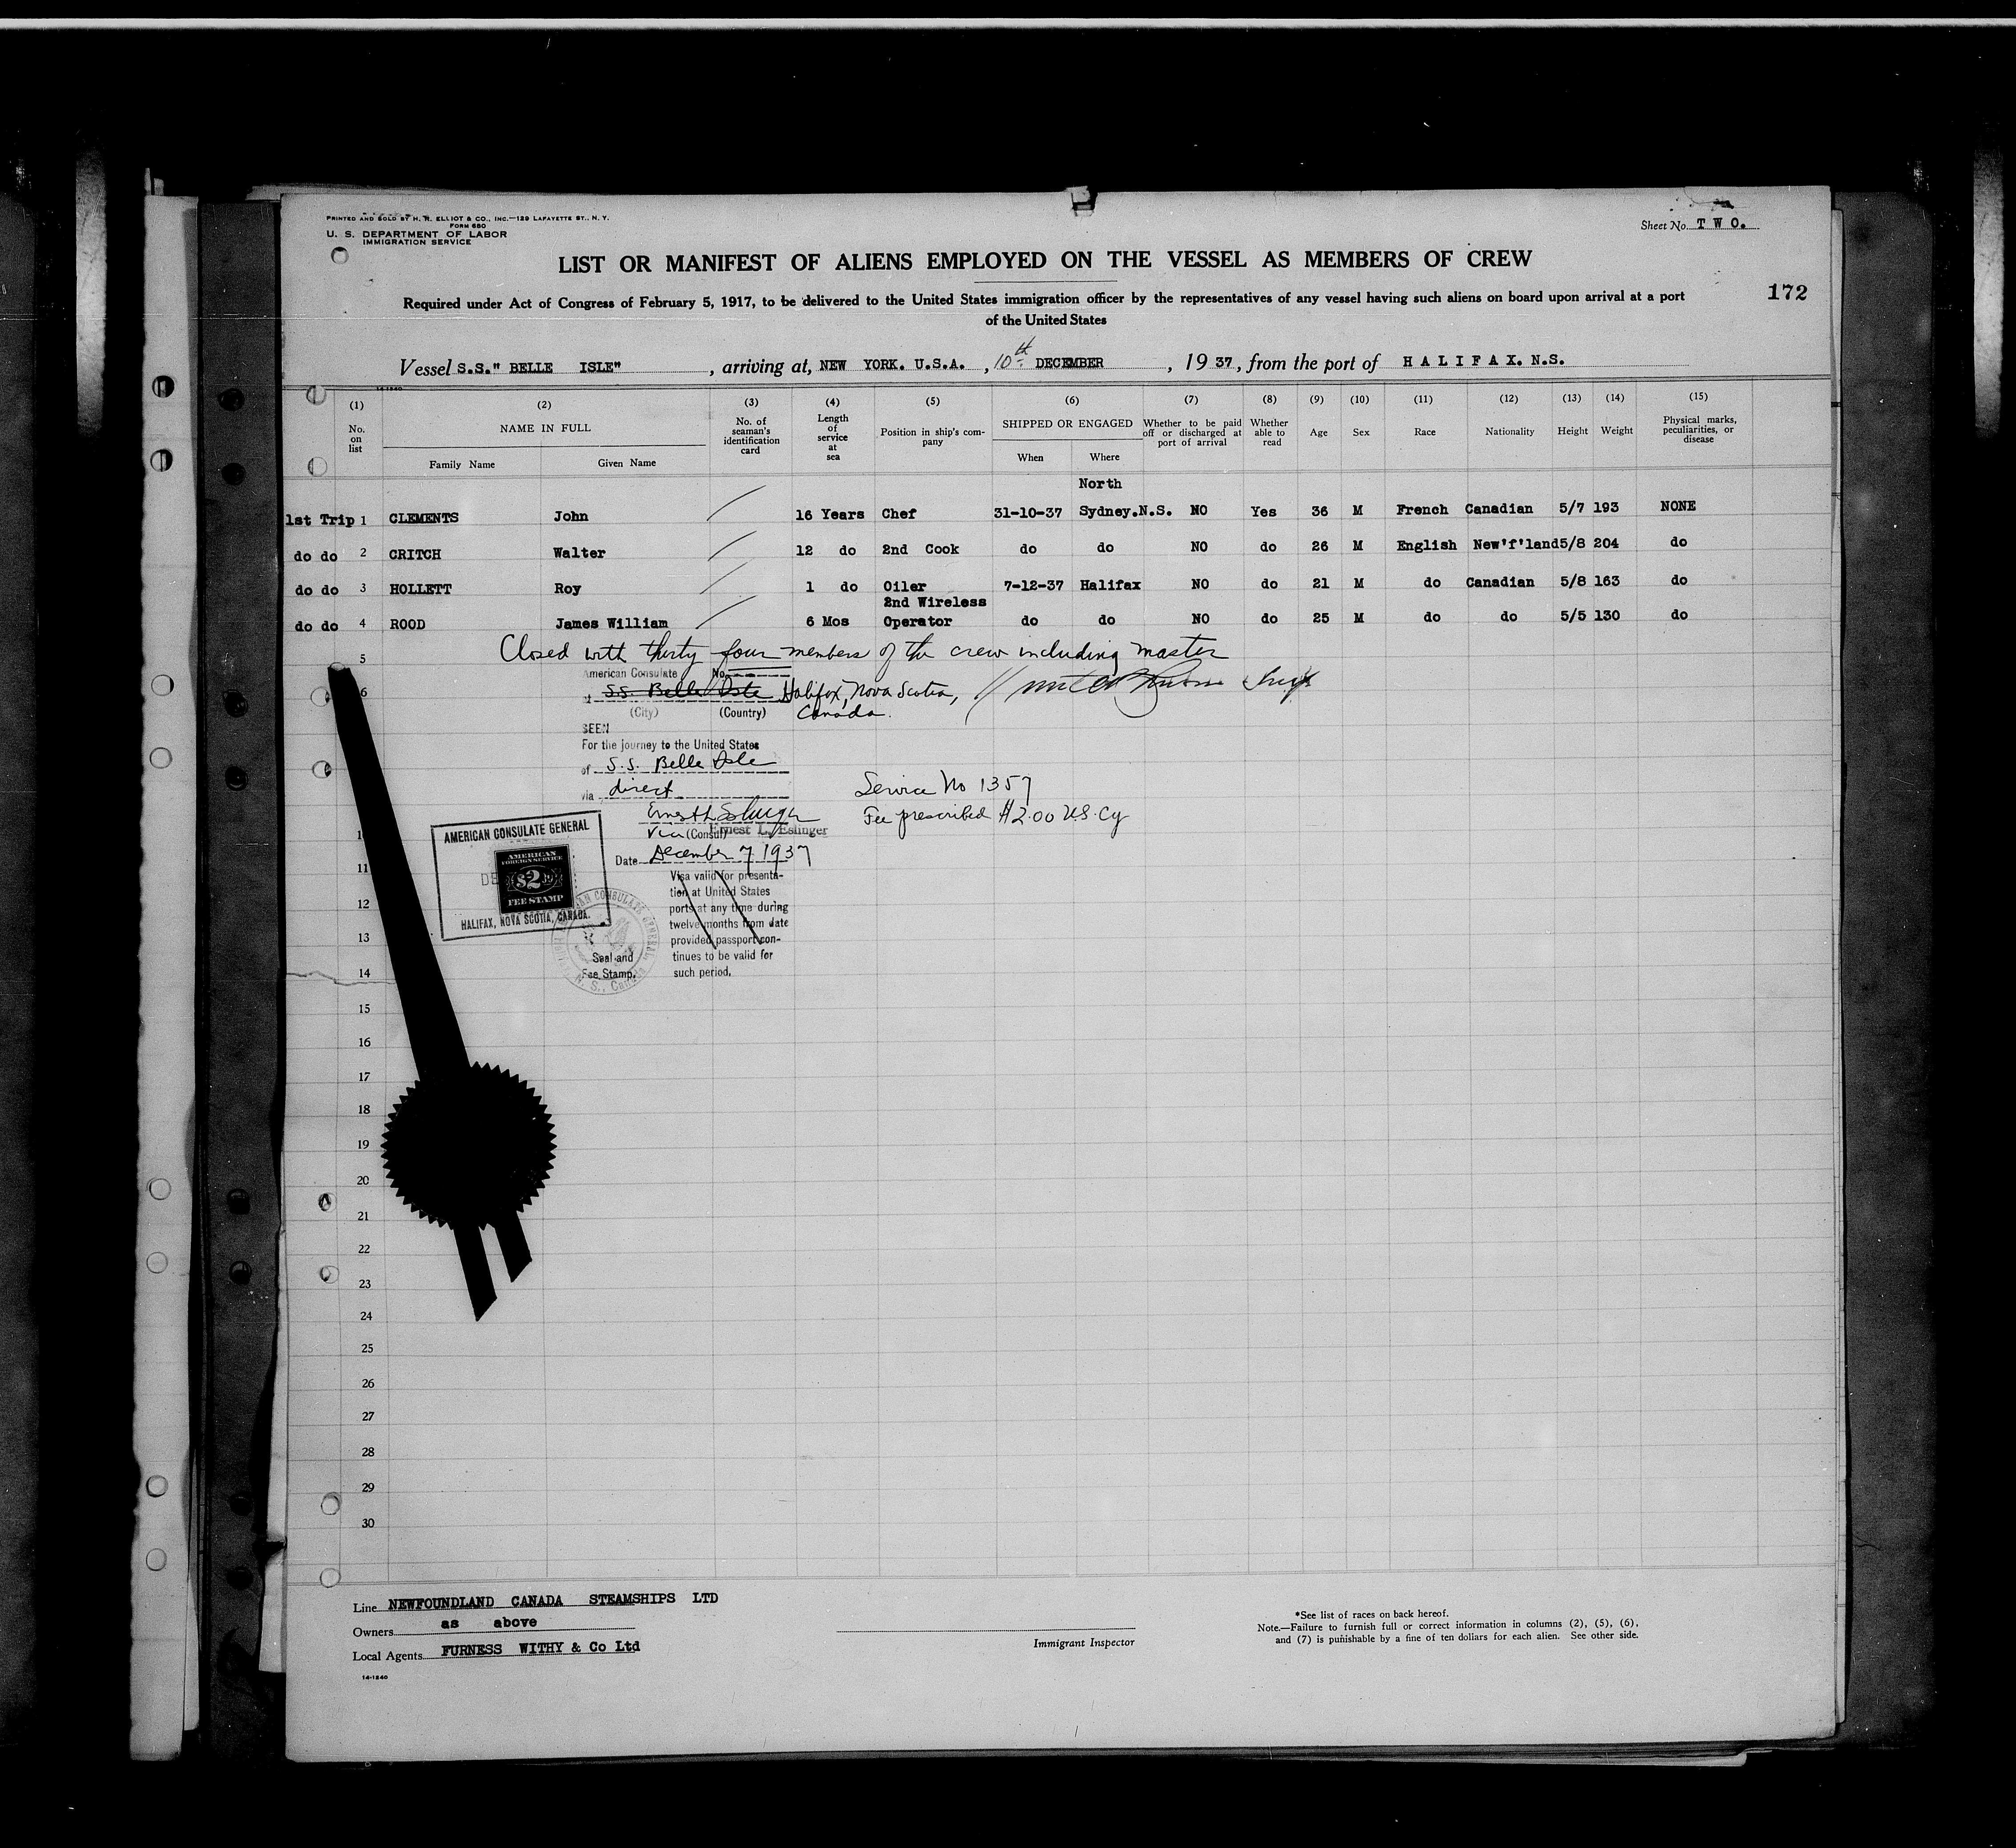 PRINTED AND SOLD BY H. R. ELLIOT & CO., INC.—129 LAFAYETTE ST., N. Y.
FORM 680
U. S. DEPARTMENT OF LABOR
IMMIGRATION SERVICE
Sheet No. T W O.
LIST OR MANIFEST OF ALIENS EMPLOYED ON THE VESSEL AS MEMBERS OF CREW
172
Required under Act of Congress of February 5, 1917, to be delivered to the United States immigration officer by the representatives of any vessel having such aliens on board upon arrival at a port
of the United States
Vessel S.S." BELLE ISLE" , arriving at, NEW YORK. U.S.A. , 10th DECEMBER , 19 37, from the port of H A L I F A X. N.S.
14-1240
(1) (2) (3) (4) (5) (6) (7) (8) (9) (10) (11) (12) (13) (14) (15)
No. on list NAME IN FULL Family Name Given Name No. of seaman's identification card Length of service at sea Position in ship's com- pany SHIPPED OR ENGAGED When Where Whether to be paid off or discharged at port of arrival Whether able to read Age Sex Race Nationality Height Weight Physical marks, peculiarities, or disease
North
1st Trip 1 CLEMENTS John 16 Years Chef 31-10-37 Sydney.N.S. NO Yes 36 M French Canadian 5/7 193 NONE
do do 2 CRITCH Walter 12 do 2nd Cook do do NO do 26 M English New'f'land 5/8 204 do
do do 3 HOLLETT Roy 1 do Oiler 7-12-37 Halifax NO do 21 M do Canadian 5/8 163 do
2nd Wireless
do do 4 ROOD James William 6 Mos Operator do do NO do 25 M do do 5/5 130 do
Closed with thirty four members of the crew including master
5
American Consulate No.
6
at S.S. Belle Isle Halifax, Nova Scotia,
(City) (Country) Canada.
SEEN
For the journey to the United States
of S.S. Belle Isle
via direct
Service No 1357
Fee prescribed $2.00 U.S. Cy
Vice (Consul) Ernest L. Eslinger
Date December 7, 1937
AMERICAN CONSULATE GENERAL
AMERICAN
FOREIGN SERVICE
$2.00
FEE STAMP
HALIFAX, NOVA SCOTIA, CANADA.
Visa valid for presenta-
tion at United States
ports at any time during
twelve months from date
provided passport con-
tinues to be valid for
such period.
Seal and
Fee Stamp.
11
12
13
14
15
16
17
18
19
20
21
22
23
24
25
26
27
28
29
30
Line NEWFOUNDLAND CANADA STEAMSHIPS LTD
Owners as above
Local Agents FURNESS WITHY & Co Ltd
14-1240
Immigrant Inspector
*See list of races on back hereof.
Note.—Failure to furnish full or correct information in columns (2), (5), (6),
and (7) is punishable by a fine of ten dollars for each alien. See other side.